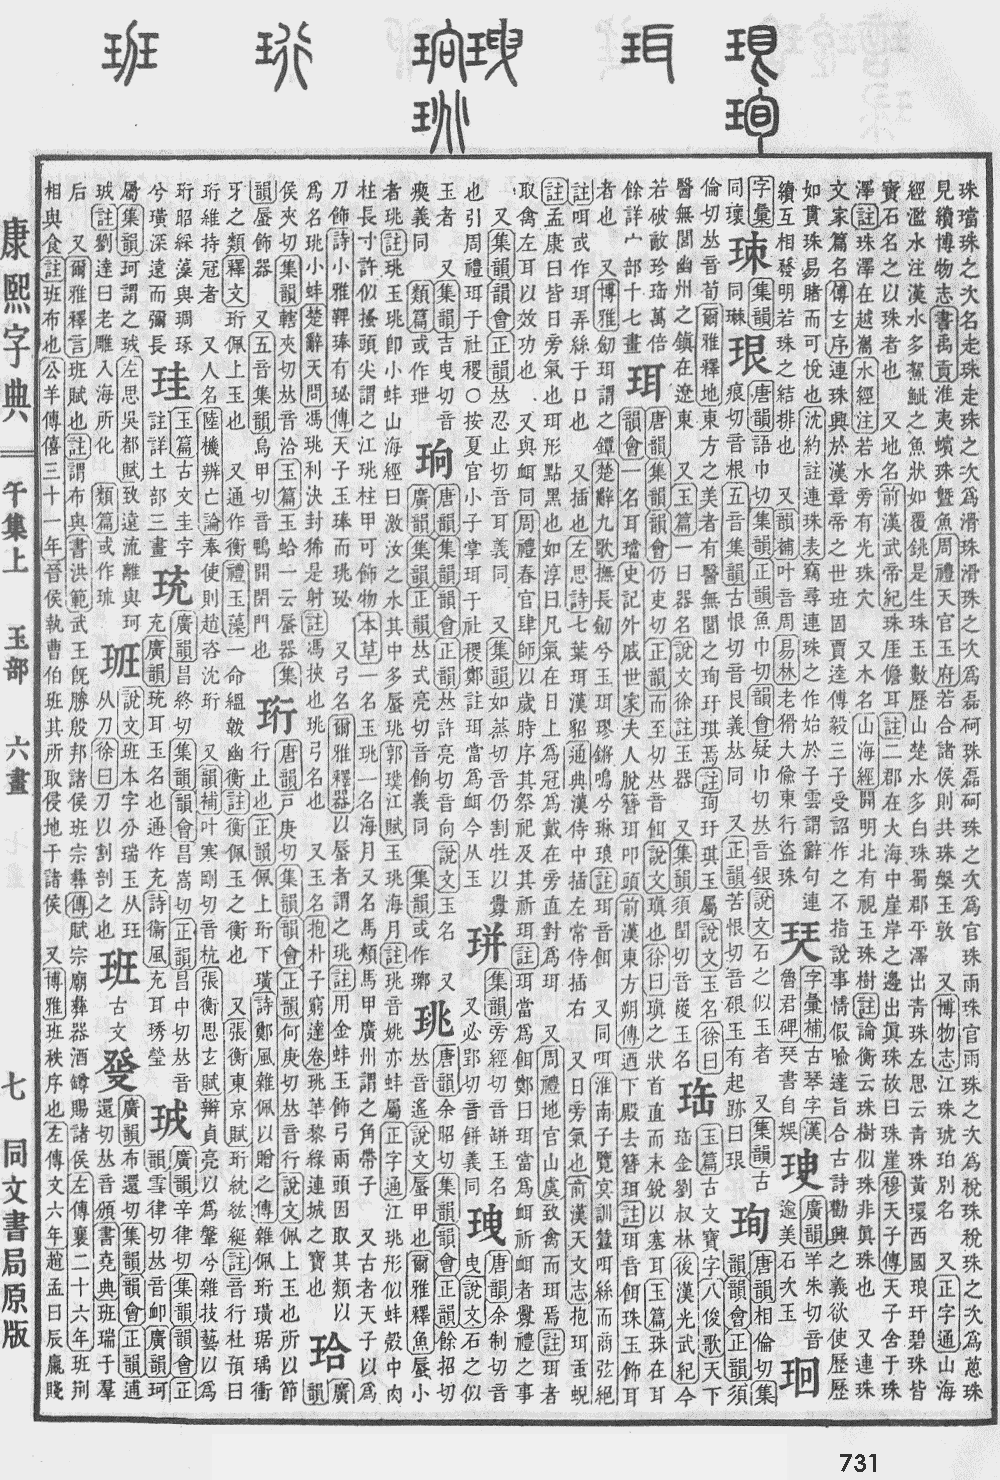 珠璫珠之次名走珠走珠之次爲滑珠滑珠之次爲磊砢珠磊砢珠之次爲官珠雨珠官雨珠之次爲稅珠稅珠之次爲蔥珠
見續博物志書禹貢淮夷蠙珠曁魚周禮天官玉府若合諸侯則共珠槃玉敦 又博物志江珠琥珀別名 又正字通山海
經濫水注漢水多鴽魮之魚狀如覆銚是生珠玉數歷山楚水多白珠蜀郡平澤出靑珠左思云靑珠黃環西國琅玕碧珠皆
寶石名之以珠者也 又地名前漢武帝紀珠厓儋耳註二郡在大海中崖岸之邊出眞珠故曰珠崖穆天子傳天子舍于珠
澤註珠澤在越巂水經注若水旁有光珠穴 又木名山海經開明北有視玉珠樹註論衡云珠樹似珠非眞珠也 又連珠
文家篇名傅玄序連珠興於漢章帝之世班固賈逵傅毅三子受詔作之不指說事情假喩達旨合古詩勸興之義欲使歷歷
如貫珠易睹而可悅也沈約註連珠表竊尋連珠之作始於子雲謂辭句連
續互相發明若珠之結排也 又韻補叶音周易林老猾大偸東行盜珠
琹 字彙補古琴字漢魯君碑琹書自娛
廣韻羊朱切音逾美石次玉
珚 字彙同瓌
㻋 集韻同琳
珢 唐韻語巾切集韻正韻魚巾切韻會疑巾切𠀤音銀說文石之似玉者 又集韻古痕切音根五音集韻古恨切音艮義𠀤同 又正韻苦恨切音硍玉有起跡曰珢
珣 唐韻相倫切集韻韻會正韻須倫切𠀤音荀爾雅釋地東方之美者有醫無閭之珣玗琪焉註珣玗琪玉屬說文玉名徐曰醫無閭幽州之鎭在遼東 又玉篇一曰器名說文徐註玉器 又集韻須閏切音峻玉名
珤 玉篇古文寶字八俊歌天下珤金劉叔林後漢光武紀今若破敵珍珤萬倍餘詳宀部十七畫
珥 唐韻集韻韻會仍吏切正韻而至切𠀤音餌說文瑱也徐曰瑱之狀首直而末銳以塞耳玉篇珠在耳韻會一名耳璫史記外戚世家夫人脫簪珥叩頭前漢東方朔傳迺下殿去簪珥註珥音餌珠玉飾耳者也 又博雅劒珥謂之鐔楚辭九歌撫長劒兮玉珥璆鏘鳴兮琳琅註珥音餌 又同咡淮南子覽冥訓蠶咡絲而商弦絕註咡或作珥弄絲于口也 又插也左思詩七葉珥漢貂通典漢侍中插左常侍插右 又日旁氣也前漢天文志抱珥䖝蜺註孟康曰皆日旁氣也珥形點黑也如淳曰凡氣在日上爲冠爲戴在旁直對爲珥 又周禮地官山虞致禽而珥焉註珥者取禽左耳以效功也 又與衈同周禮春官肆師以歲時序其祭祀及其祈珥註珥當爲餌鄭曰珥當爲衈祈衈者釁禮之事也引周禮珥于社稷〇按夏官小子掌珥于社稷鄭註珥當爲衈今从玉 又集韻韻會正韻𠀤忍止切音耳義同 又集韻如蒸切音仍割牲以釁
珦 唐韻集韻韻會正韻𠀤許亮切音向說文玉名 又廣韻集韻正韻𠀤式亮切音餉義同 集韻或作𤪪
珧 唐韻余昭切集韻韻會正韻餘招切𠀤音遙說文蜃甲也爾雅釋魚蜃小者珧註珧玉珧卽小蚌山海經曰激汝之水其中多蜃珧郭璞江賦玉珧海月註珧音姚亦蚌屬正字通江珧形似蚌殼中肉柱長寸許似搔頭尖謂之江珧柱甲可飾物本草一名玉珧一名海月又名馬頰馬甲廣州謂之角帶子 又古者天子以爲刀飾詩小雅鞞琫有珌傳天子玉琫而珧珌 又弓名爾雅釋器以蜃者謂之珧註用金蚌玉飾弓兩頭因取其類以爲名珧小蚌楚辭天問馮珧利決封狶是射註馮挾也珧弓名也 又玉名抱朴子窮達卷珧華黎綠連城之寶也
珨 廣韻侯夾切集韻轄夾切𠀤音洽玉篇玉蛤一云蜃器集韻蜃飾器 又五音集韻烏甲切音鴨開閉門也
珩 唐韻戸庚切集韻韻會正韻何庚切𠀤音行說文佩上玉也所以節行止也正韻佩上珩下璜詩鄭風雜佩以贈之傳雜佩珩璜琚瑀衝牙之類釋文珩佩上玉也 又通作衡禮玉藻一命縕韍幽衡註衡佩玉之衡也 又張衡東京賦珩紞紘綖註音行杜預曰珩維持冠者 又人名陸機辨亡論奉使則趙咨沈珩 又韻補叶寒剛切音杭張衡思玄賦辮貞亮以爲鞶兮雜技藝以爲珩昭綵藻與琱琭兮璜深遠而彌長
珪 玉篇古文圭字註詳土部三畫
珫 廣韻昌終切集韻韻會昌嵩切正韻昌中切𠀤音充廣韻珫耳玉名也通作充詩衞風充耳琇瑩
珬 廣韻辛律切集韻韻會正韻雪律切𠀤音卹廣韻珂屬集韻珂謂之珬左思吳都賦致遠流離與珂珬註劉逵曰老雕入海所化 類篇或作㻑
班 說文班本字分瑞玉从玨从刀徐曰刀以割剖之也
班 古文 廣韻布還切集韻韻會正韻逋還切𠀤音頒書堯典班瑞于羣后 又爾雅釋言班賦也註謂布與書洪範武王旣勝殷邦諸侯班宗彝傳賦宗廟彝器酒罇賜諸侯左傳襄二十六年班荊相與食註班布也公羊傳僖三十一年晉侯執曹伯班其所取侵地于諸侯 又博雅班秩序也左傳文六年趙孟曰辰嬴賤
康熙字典 午集上 玉部 六畫
七 同文書局原版
731